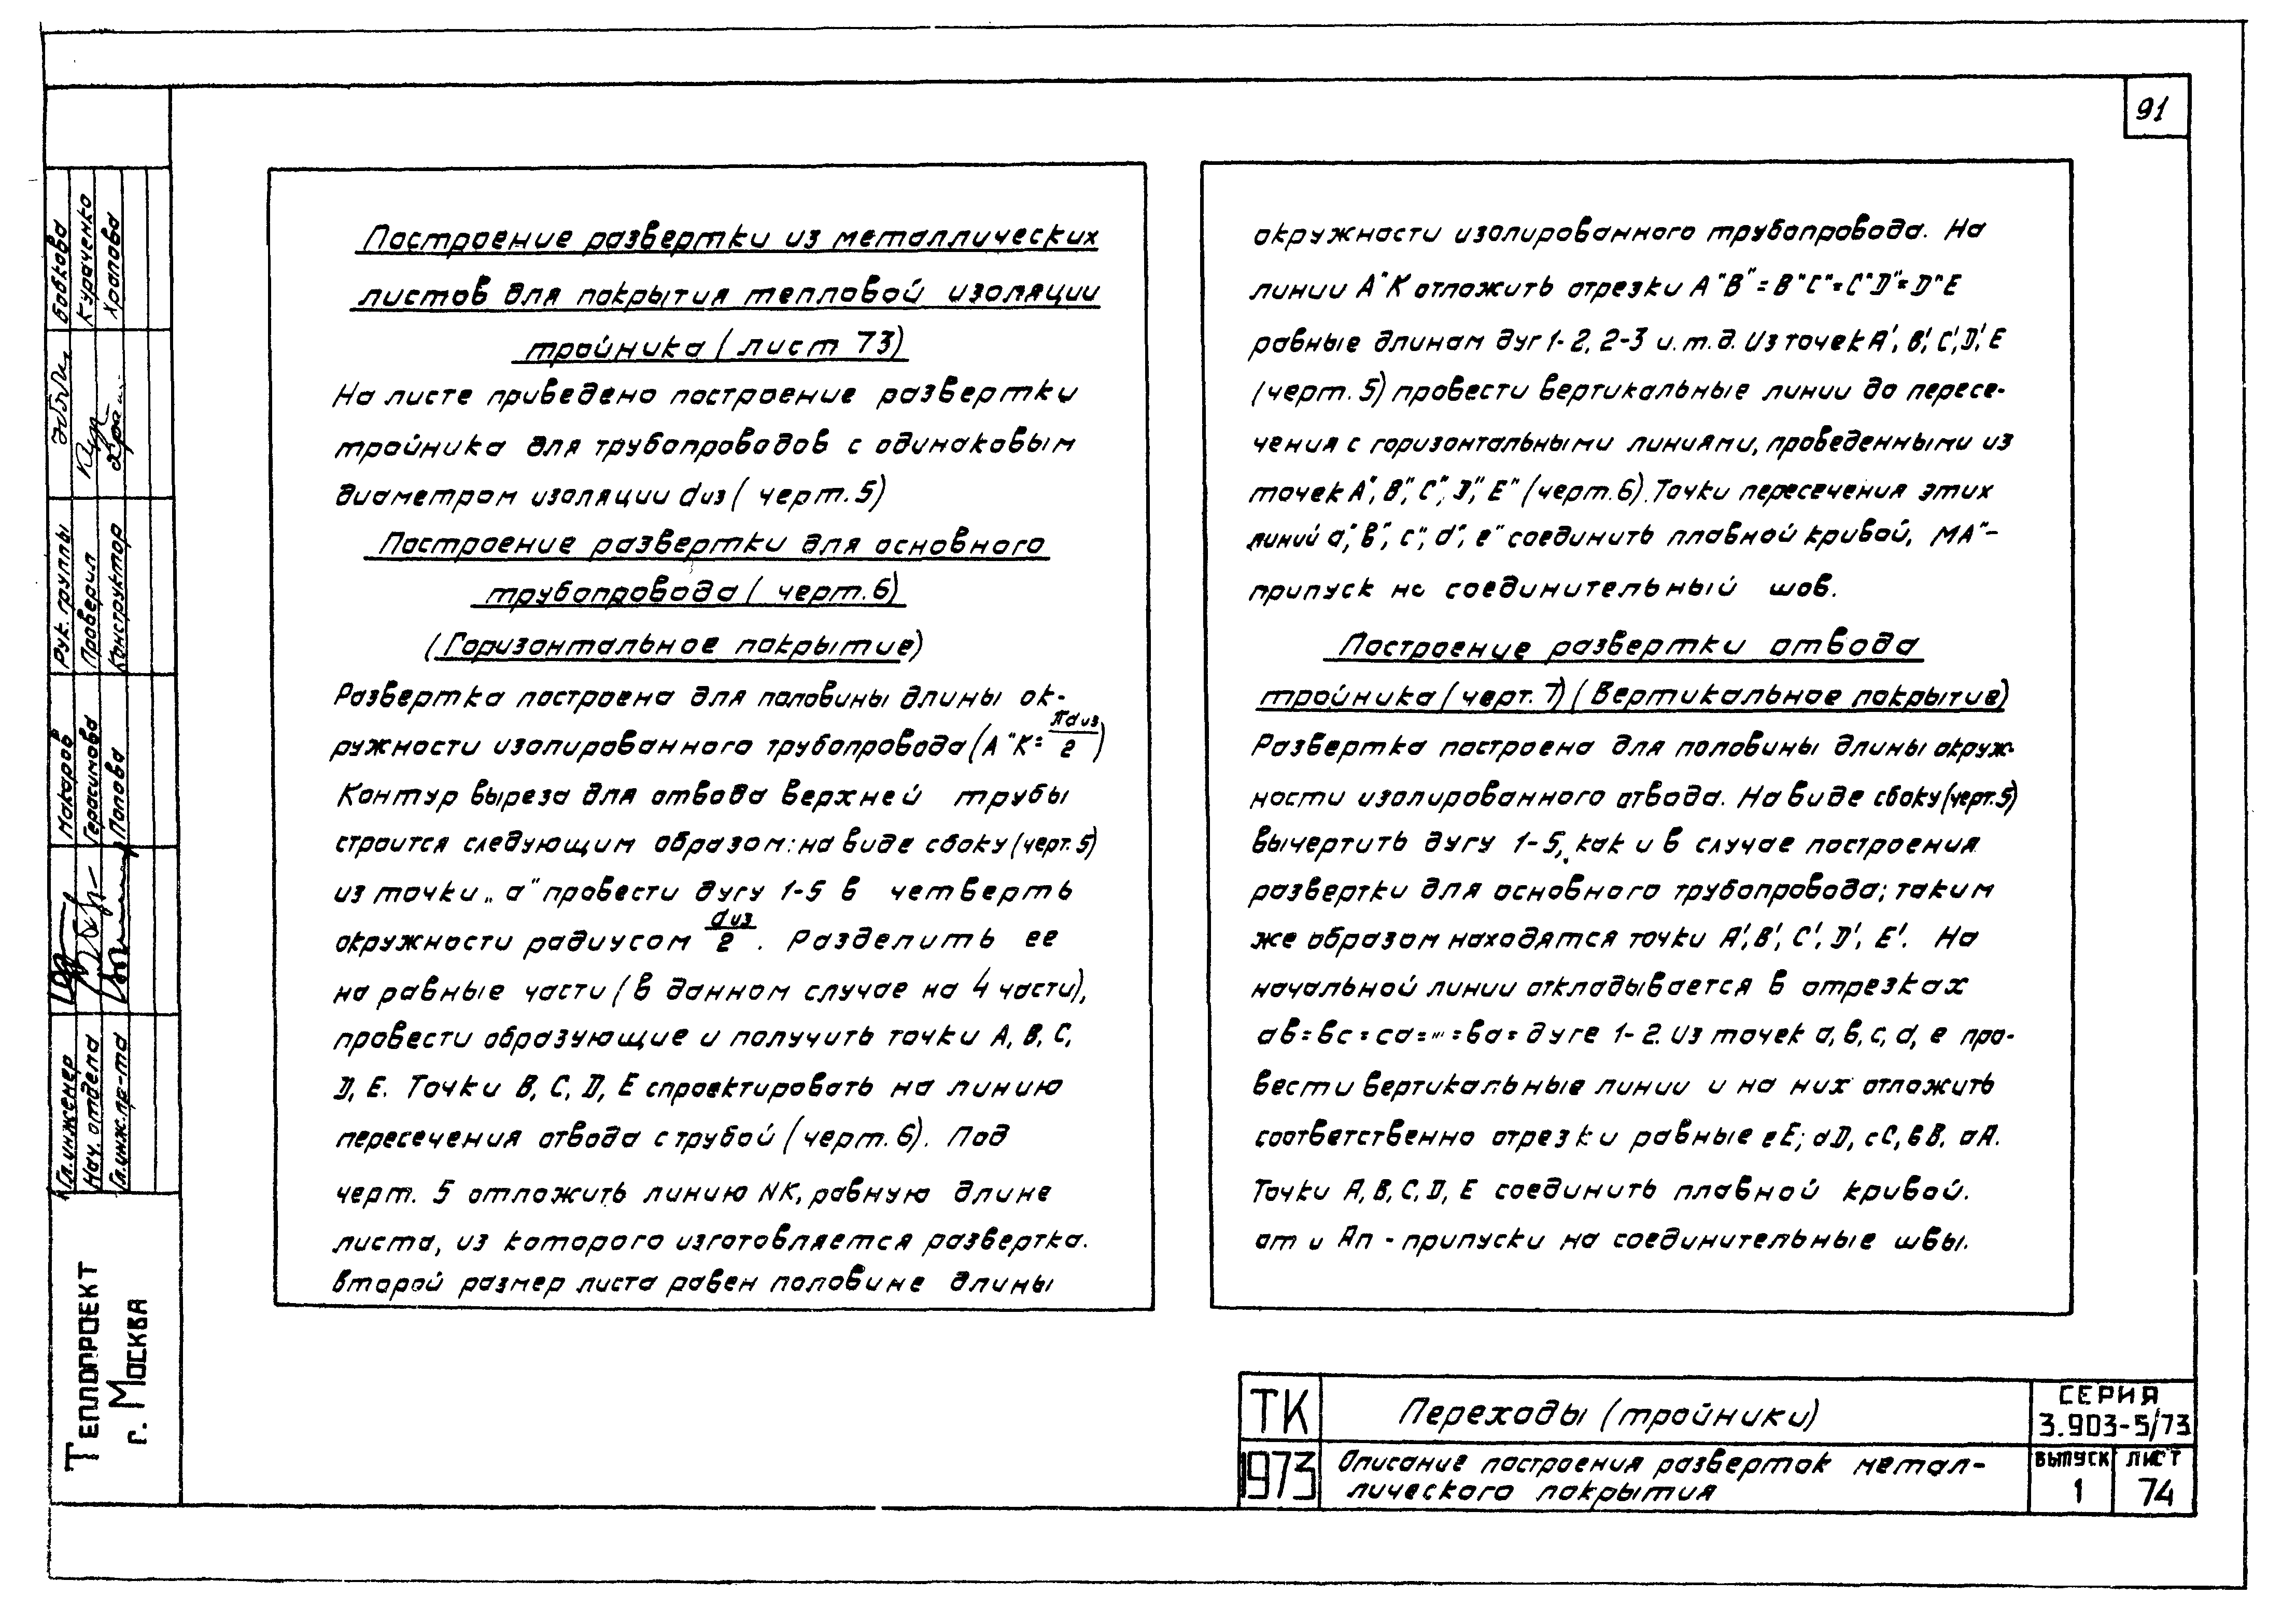 91
Построение развертки из металлических
листов для покрытия тепловой изоляции
тройника (лист 73)
На листе приведено построение развертки
тройника для трубопроводов с одинаковым
диаметром изоляции dиз (черт. 5)
Построение развертки для основного
трубопровода (черт. 6)
(Горизонтальное покрытие)
Развертка построена для половины длины ок-
ружности изолированного трубопровода (A"K= πdиз/2)
Контур выреза для отвода верхней трубы
строится следующим образом: на виде сбоку (черт. 5)
из точки „а" провести дугу 1-5 в четверть
окружности радиусом dиз/2. Разделить ее
на равные части (в данном случае на 4 части),
провести образующие и получить точки A, B, C,
D, E. Точки B, C, D, E спроектировать на линию
пересечения отвода с трубой (черт. 6). Под
черт. 5 отложить линию NK, равную длине
листа, из которого изготовляется развертка.
Второй размер листа равен половине длины
окружности изолированного трубопровода. На
линии A"K отложить отрезки A"B"=B"C"=C"D"=D"E
равные длинам дуг 1-2, 2-3 и.т.д. Из точек A', B', C', D', E
(черт. 5) провести вертикальные линии до пересе-
чения с горизонтальными линиями, проведенными из
точек A", B", C", D", E" (черт. 6). Точки пересечения этих
линий a", b", c", d", e" соединить плавной кривой, MA"-
припуск на соединительный шов.
Построение развертки отвода
тройника (черт. 7) (Вертикальное покрытие)
Развертка построена для половины длины окруж-
ности изолированного отвода. На виде сбоку (черт. 5)
вычертить дугу 1-5, как и в случае построения
развертки для основного трубопровода; таким
же образом находятся точки A', B', C', D', E'. На
начальной линии откладывается 8 отрезках
ab=bc=ca=...=ba= дуге 1-2. Из точек a, b, c, d, e про-
вести вертикальные линии и на них отложить
соответственно отрезки равные eE; dD, cC, bB, aA.
Точки A, B, C, D, E соединить плавной кривой.
am и An - припуски на соединительные швы.
Бобкова
Кураченко
Храпова
Рук. группы
Проверил
Конструктор
Макаров
Герасимова
Попова
Гл.инженер
Нач. отдела
Гл.инж.пр-та
Теплопроект
г. Москва
ТК
1973
Переходы (тройники)
Описание построения разверток метал-
лического покрытия
СЕРИЯ
3.903-5/73
ВЫПУСК
1
ЛИСТ
74